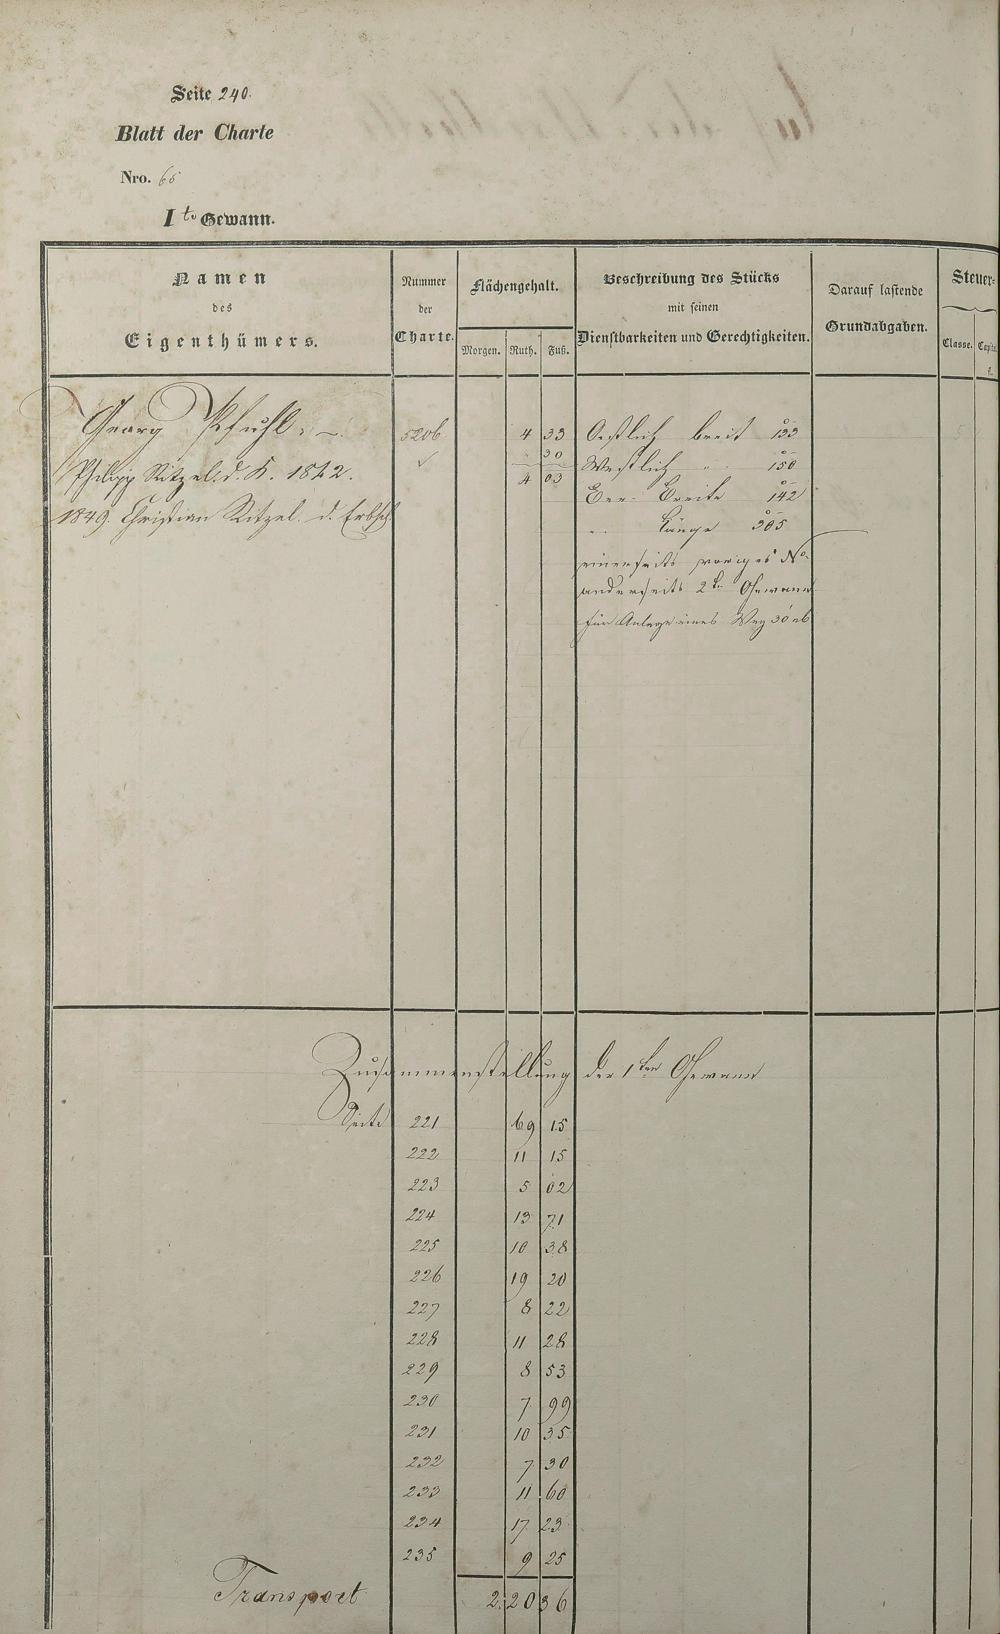 Seite 240.
Blatt der Charte
Nro. 65
I te Gewann.
Namen
des
Eigenthümers.
Nummer
der
Charte.
Flächengehalt.
Morgen. Ruth. Fuß.
Beschreibung des Stücks
mit seinen
Dienstbarkeiten und Gerechtigkeiten.
Darauf lastende
Grundabgaben.
Steuer-
Classe. Capital
fl.
Georg Pfuhl. 5206 4 33 Oestlich breit 133
30
Philipp Ritzel d. K. 1842. 4 03 Westlich " 150
1849. Christian Ritzel. d. Erbsch. Breite 142
" Länge 305
einerseits voriges No
anderseits 2te Gewann
für Anlage eines Weg 30 ab
Zusammenstellung der 1ten Gewann
Seite 221 69 15
222 11 15
223 5 02
224 13 71
225 10 38
226 19 20
227 8 22
228 11 28
229 8 53
230 7 99
231 10 35
232 7 30
233 11 60
234 17 23
235 9 25
Transport 2. 20 36